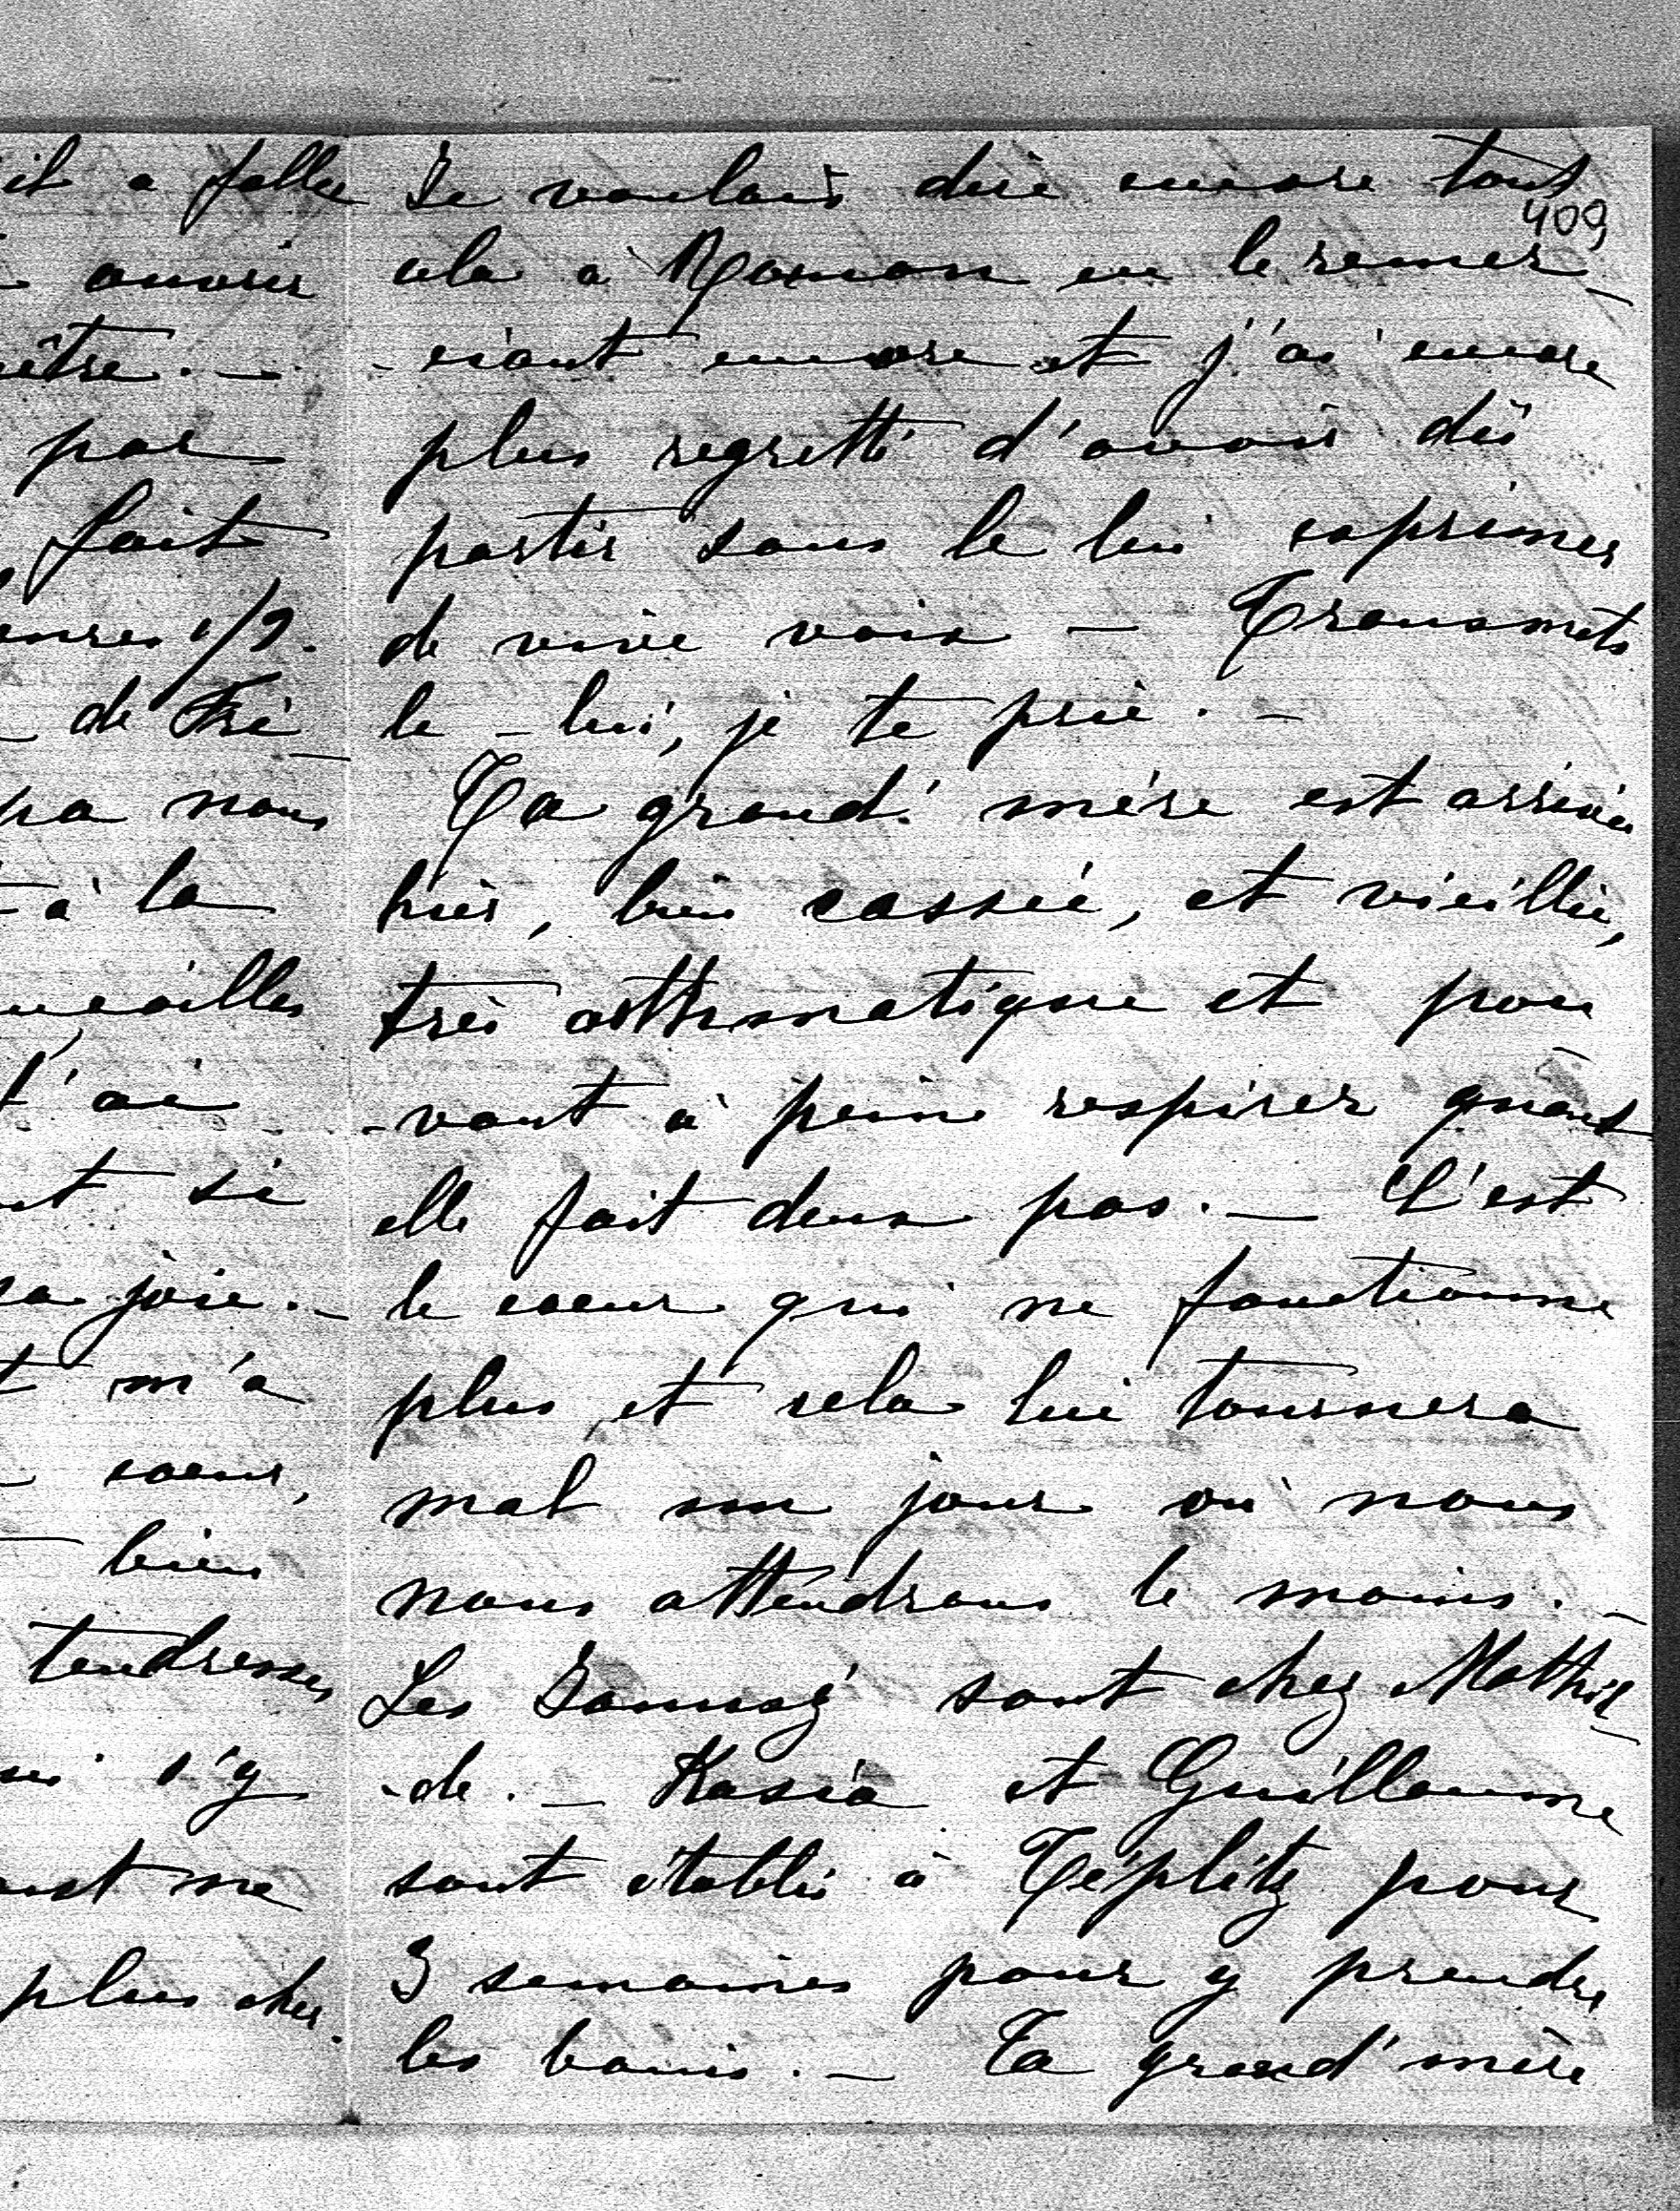 il a fallu
ouvrir
être. —
par
fait
1/2.
de Fré-
pa nous
à la
t'ai
si
sa joie. —
m'a
soeur,
bien
tendresses
s'y
ne
plus cher.
409
Je voulais dire encore tout
cela à Roman en le remer-
-ciant encore et j'ai encore
plus regretté d'avoir dû
partir sans le lui exprimer
de vive voix — Transmets
le - lui, je te prie. —
Ta grand' mère est arrivée
hier, bien cassée, et vieillie,
très asthmatique et pou-
-vant à peine respirer quand
elle fait deux pas. — C'est
le coeur qui ne fonctionne
plus et cela lui tournera
mal un jour où nous
nous attendrons le moins. —
Les sont chez Mathil-
-de. — Kasia et Guillaume
sont établis à Téplitz pour
3 semaines pour y prendre
les bains. — Ta grand' mère